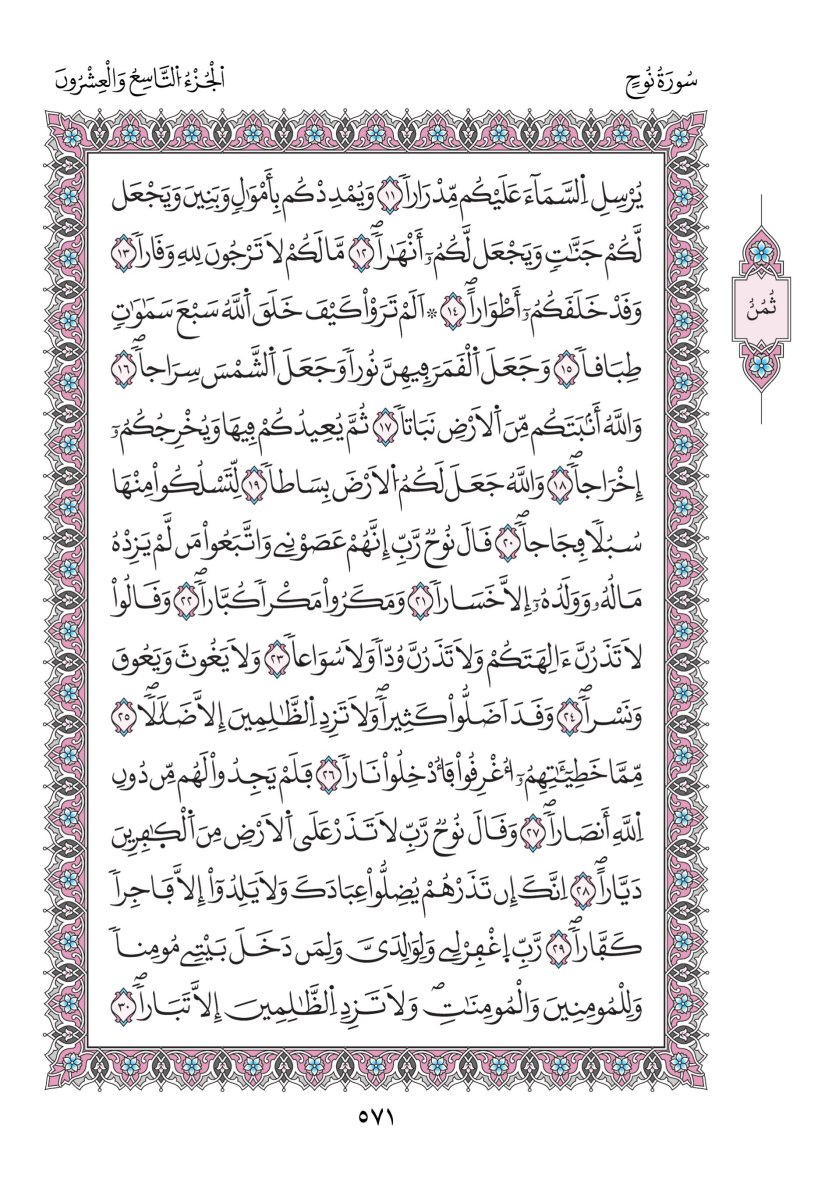 سُورَةُ نُوحٍ
اَلْجُزْءُ اَلتَّاسِعُ وَالْعِشْرُونَ
يُرْسِلِ اِلسَّمَآءَ عَلَيْكُم مِّدْرَاراٗ ١١ وَيُمْدِدْكُم بِأَمْوَٰلٖ وَبَنِينَ وَيَجْعَل
لَّكُمْ جَنَّٰتٖ وَيَجْعَل لَّكُمُۥٓ أَنْهَٰراٗۖ ١٢ مَّا لَكُمْ لَا تَرْجُونَ لِلهِ وَقَاراٗ ١٣
وَقَدْ خَلَقَكُمُۥٓ أَطْوَاراًۖ ١٤ ۞ اَلَمْ تَرَوْاْ كَيْفَ خَلَقَ اَللَّهُ سَبْعَ سَمَٰوَٰتٖ
طِبَاقاٗ ١٥ وَجَعَلَ اَلْقَمَرَ فِيهِنَّ نُوراٗ وَجَعَلَ اَلشَّمْسَ سِرَاجاٗۖ ١٦
وَاللَّهُ أَنۢبَتَكُم مِّنَ اَلَارْضِ نَبَاتاٗ ١٧ ثُمَّ يُعِيدُكُمْ فِيهَا وَيُخْرِجُكُمُۥٓ
إِخْرَاجاٗۖ ١٨ وَاللَّهُ جَعَلَ لَكُمُ اُلَارْضَ بِسَاطاٗ ١٩ لِّتَسْلُكُواْ مِنْهَا
سُبُلاٗ فِجَاجاٗۖ ٢٠ قَالَ نُوحٞ رَّبِّ إِنَّهُمْ عَصَوْنِے وَاتَّبَعُواْ مَن لَّمْ يَزِدْهُ
مَالُهُۥ وَوَلَدُهُۥٓ إِلَّا خَسَاراٗ ٢١ وَمَكَرُواْ مَكْراٗ كُبَّاراٗۖ ٢٢ وَقَالُواْ
لَا تَذَرُنَّ ءَالِهَتَكُمْ وَلَا تَذَرُنَّ وُدّاٗ وَلَا سُوَاعاٗ ٢٣ وَلَا يَغُوثَ وَيَعُوقَ
وَنَسْراٗۖ ٢٤ وَقَدَ اَضَلُّواْ كَثِيراٗۖ وَلَا تَزِدِ اِلظَّٰلِمِينَ إِلَّا ضَلَٰلاٗۖ ٢٥
مِّمَّا خَطِيٓـَٰٔتِهِمُۥٓ أُغْرِقُواْ فَأُدْخِلُواْ نَاراٗ ٢٦ فَلَمْ يَجِدُواْ لَهُم مِّن دُونِ
اِللَّهِ أَنصَاراٗۖ ٢٧ وَقَالَ نُوحٞ رَّبِّ لَا تَذَرْ عَلَى اَلَارْضِ مِنَ اَلْكٰ۪فِرِينَ
دَيَّاراًۖ ٢٨ اِنَّكَ إِن تَذَرْهُمْ يُضِلُّواْ عِبَادَكَ وَلَا يَلِدُوٓاْ إِلَّا فَاجِراٗ
كَفَّاراٗۖ ٢٩ رَّبِّ اِ۪غْفِرْ لِے وَلِوَٰلِدَيَّ وَلِمَن دَخَلَ بَيْتِے مُومِناٗ
وَلِلْمُومِنِينَ وَالْمُومِنَٰتِۖ وَلَا تَزِدِ اِلظَّٰلِمِينَ إِلَّا تَبَاراٗۖ ٣٠
ثُمُنُ
٥٧١